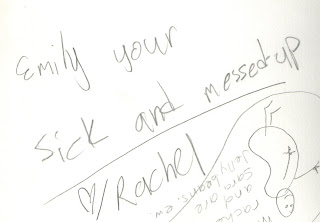 Emily your
sick and messed up
♡/Rachel
and are
Jellybeans. ew.